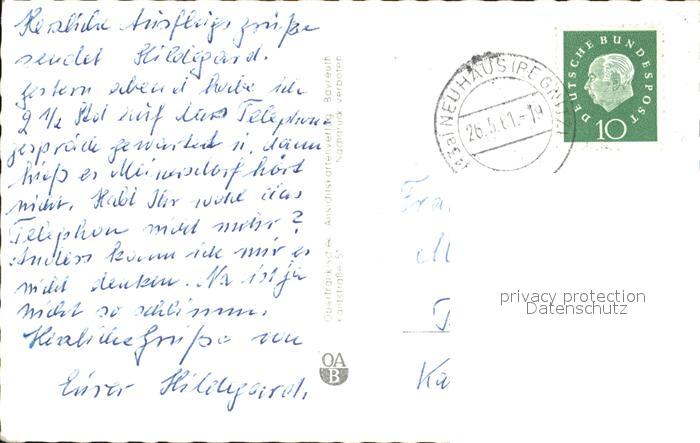 Herzliche Ausflugsgrüße
sendet Hildegard.
Gestern abend habe ich
2 1/2 Std auf das Telephon
gespräch gewartet u. dann
hieß es Meinersdorf hört
nicht. Habt Ihr wohl das
Telephon nicht mehr?
Anders kann ich mir es
nicht denken. Na ist ja
nicht so schlimm.
Herzliche Grüße von
Eurer Hildegard.
Oberfränkischer Ansichtskartenverlag Bayreuth
Kantstraße 51 Nachdruck verboten
OA
B
(13a) NEUHAUS (PEGNITZ)
26.5.61.-19
DEUTSCHE BUNDESPOST
10
Fra
M
Ka
privacy protection
Datenschutz